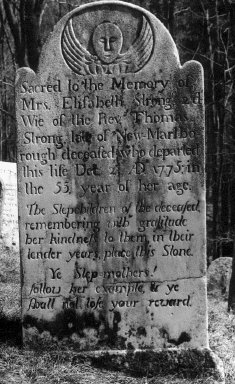 Sacred to the Memory of
Mrs. Elisabeth Strong, 2d
Wife of the Rev. Thomas
Strong, late of New-Marlbo
rough deceased, who departed
this life Dec. A.D. 1775, in
the 55 year of her age.
The Stepchildren of the deceased,
remembering with gratitude
her kindness to them in their
tender years, place this Stone.
Ye Step-mothers!
follow her example, & ye
shall not lose your reward.